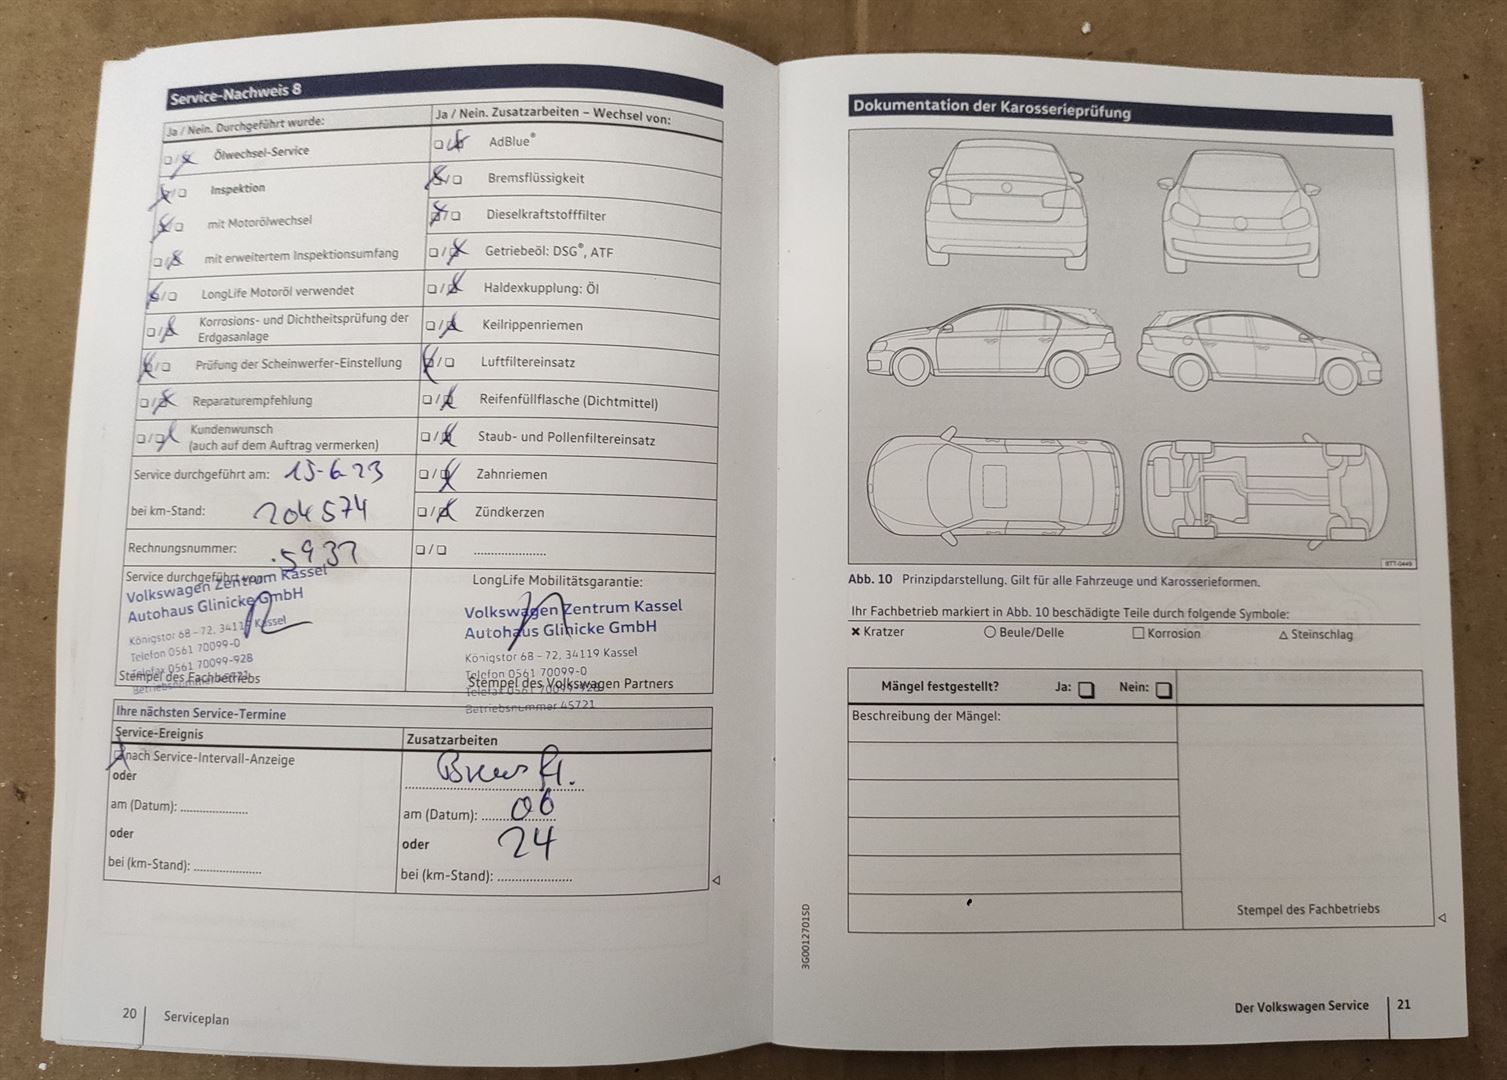 Service-Nachweis 8
Ja / Nein. Durchgeführt wurde:
Ölwechsel-Service
Inspektion
mit Motorölwechsel
mit erweitertem Inspektionsumfang
LongLife Motoröl verwendet
Korrosions- und Dichtheitsprüfung der
Erdgasanlage
Prüfung der Scheinwerfer-Einstellung
Reparaturempfehlung
Kundenwunsch
(auch auf dem Auftrag vermerken)
Service durchgeführt am: 15-6-23
bei km-Stand: 204574
Rechnungsnummer: 5937
Service durchgeführt von:
Volkswagen Zentrum Kassel
Autohaus Glinicke GmbH
Königstor 68 - 72, 34119 Kassel
Telefon 0561 70099-0
Telefax 0561 70099-928
Stempel des Fachbetriebs
Ja / Nein. Zusatzarbeiten – Wechsel von:
AdBlue®
Bremsflüssigkeit
Dieselkraftstofffilter
Getriebeöl: DSG®, ATF
Haldexkupplung: Öl
Keilrippenriemen
Luftfiltereinsatz
Reifenfüllflasche (Dichtmittel)
Staub- und Pollenfiltereinsatz
Zahnriemen
Zündkerzen
LongLife Mobilitätsgarantie:
Volkswagen Zentrum Kassel
Autohaus Glinicke GmbH
Königstor 68 - 72, 34119 Kassel
Telefon 0561 70099-0
Telefax 0561 70099-928
Stempel des Volkswagen Partners
Betriebsnummer 45721
Ihre nächsten Service-Termine
Service-Ereignis
nach Service-Intervall-Anzeige
oder
am (Datum):
oder
bei (km-Stand):
Zusatzarbeiten
Brems fl.
am (Datum): 06
oder 24
bei (km-Stand):
20 Serviceplan
Dokumentation der Karosserieprüfung
BTT-0449
Abb. 10 Prinzipdarstellung. Gilt für alle Fahrzeuge und Karosserieformen.
Ihr Fachbetrieb markiert in Abb. 10 beschädigte Teile durch folgende Symbole:
Kratzer Beule/Delle Korrosion Steinschlag
Mängel festgestellt? Ja: Nein:
Beschreibung der Mängel:
Stempel des Fachbetriebs
3G0012701SD
Der Volkswagen Service 21